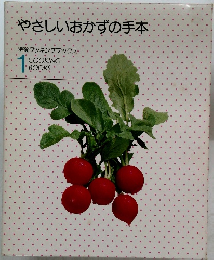 やさしいおかずの手本
1 COOKING
BOOKS